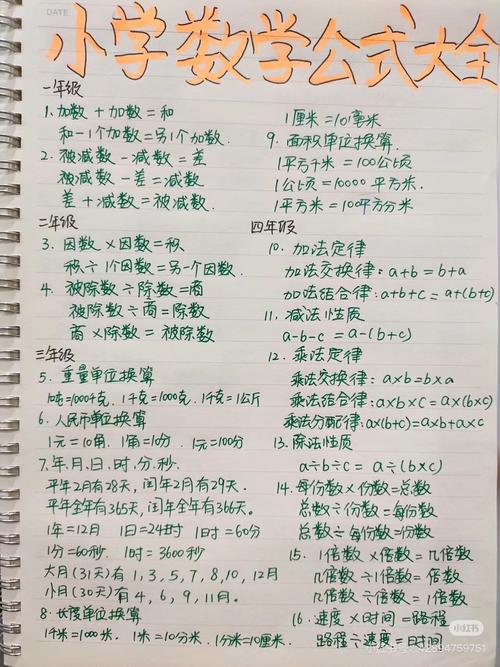 DATE
小学数学公式大全
一年级
1.加数+加数=和
和-1个加数=另1个加数.
2.被减数-减数=差
被减数-差=减数
差+减数=被减数.
二年级
3.因数×因数=积
积÷1个因数=另一个因数.
4.被除数÷除数=商
被除数÷商=除数
商×除数=被除数
三年级
5.重量单位换算
1吨=1000千克.1千克=1000克.1千克=1公斤
6.人民币单位换算
1元=10角.1角=10分.1元=100分
7.年.月.日.时.分.秒.
平年2月有28天,闰年2月有29天.
平年全年有365天,闰年全年有366天.
1年=12月 1日=24时 1时=60分
1分=60秒. 1时=3600秒
大月(31天)有1,3,5,7,8,10,12月
小月(30天)有4,6,9,11月.
8.长度单位换算
1千米=1000米.1米=10分米.1分米=10厘米.
1厘米=10毫米
9.面积单位换算.
1平方千米=100公顷
1公顷=10000平方米.
1平方米=100平方分米
四年级
10.加法定律
加法交换律:a+b=b+a
加法结合律:a+b+c=a+(b+c)
11.减法性质
a-b-c=a-(b+c)
12.乘法定律
乘法交换律:a×b=b×a
乘法结合律:a×b×c=a×(b×c)
乘法分配律:a×(b+c)=a×b+a×c
13.除法性质
a÷b÷c=a÷(b×c)
14.每份数×份数=总数
总数÷份数=每份数
总数÷每份数=份数
15.1倍数×倍数=几倍数
几倍数÷1倍数=倍数
几倍数÷倍数=1倍数
16.速度×时间=路程
路程÷速度=时间
小红书